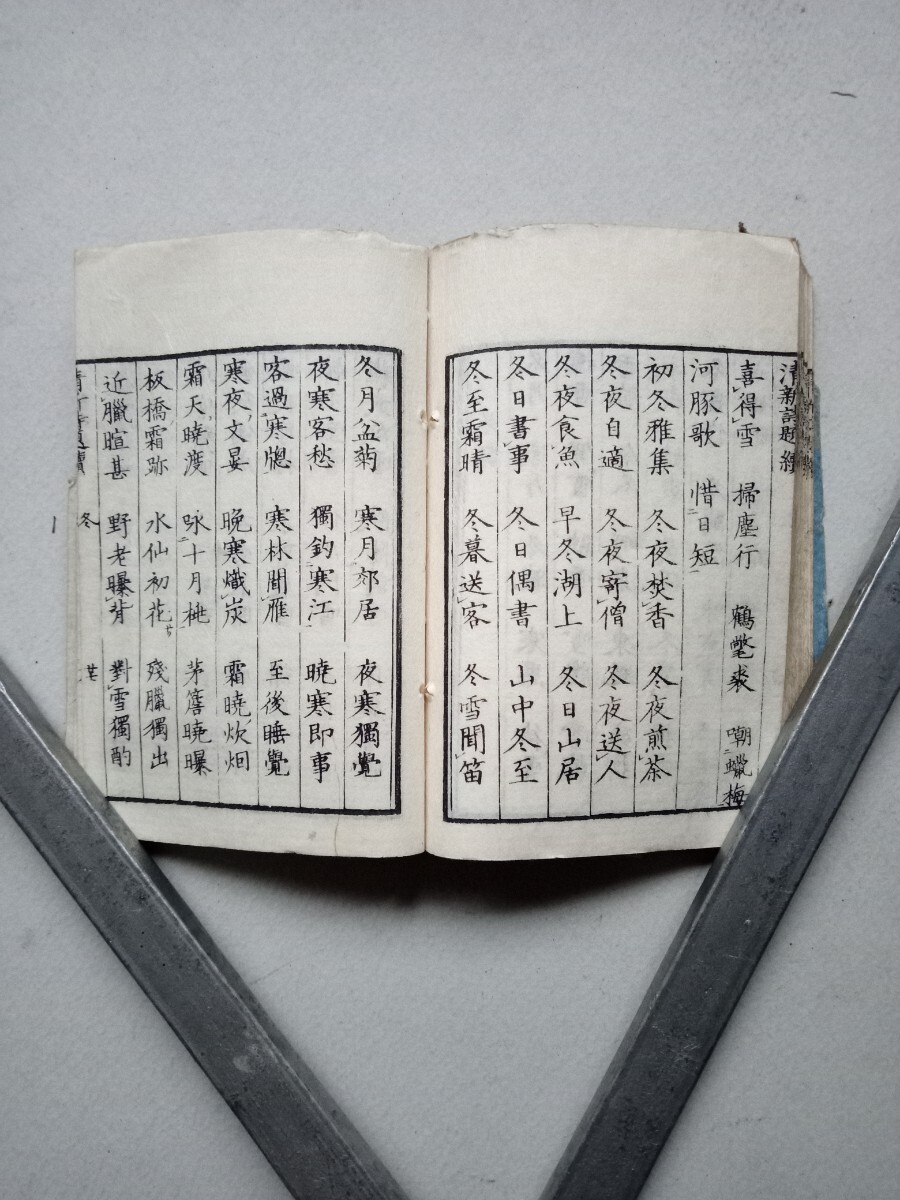 清新詩題
喜得雪　掃塵行　鶴氅裘　嘲蠟梅
河豚歌　惜日短
初冬雅集　冬夜焚香　冬夜煎茶
冬夜自適　冬夜寄僧　冬夜送人
冬夜食魚　早冬湖上　冬日山居
冬日書事　冬日偶書　山中冬至
冬至霜晴　冬暮送客　冬雪聞笛
冬月盆菊　寒月郊居　夜寒獨覺
夜寒客愁　獨釣寒江　曉寒即事
客過寒窓　寒林聞雁　至後睡覺
寒夜文宴　晚寒熾炭　霜曉炊烟
霜天曉渡　咏十月桃　茅簷曉曝
板橋霜跡　水仙初花　殘臘獨出
近臘暄甚　野老曝背　對雪獨酌
冬